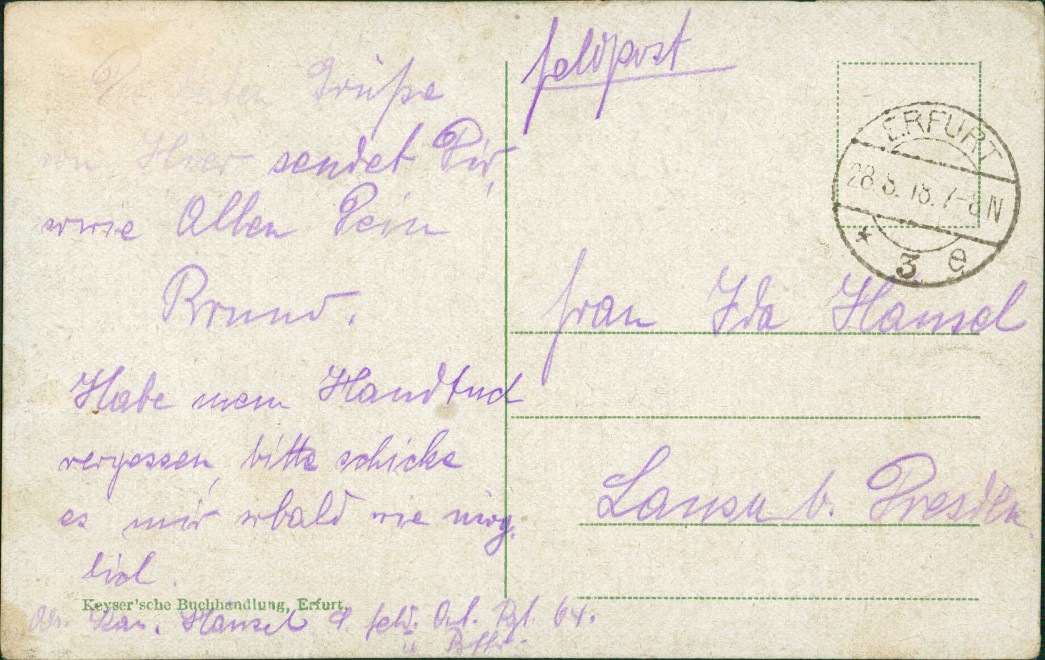 Grüße
von Hier sendet Dir,
sowie Allen Dein
Bruno.
Habe mein Handtuch
vergessen, bitte schicke
es mir sobald wie mög-
lich.
Keyser'sche Buchhandlung, Erfurt.
Abs. Kan. Hänsel Feld. Art. Rgt. 64.
Feldpost
ERFURT
28.8.18.7-8N
* 3 e
Frau Ida Hänsel
Lausa b. Dresden